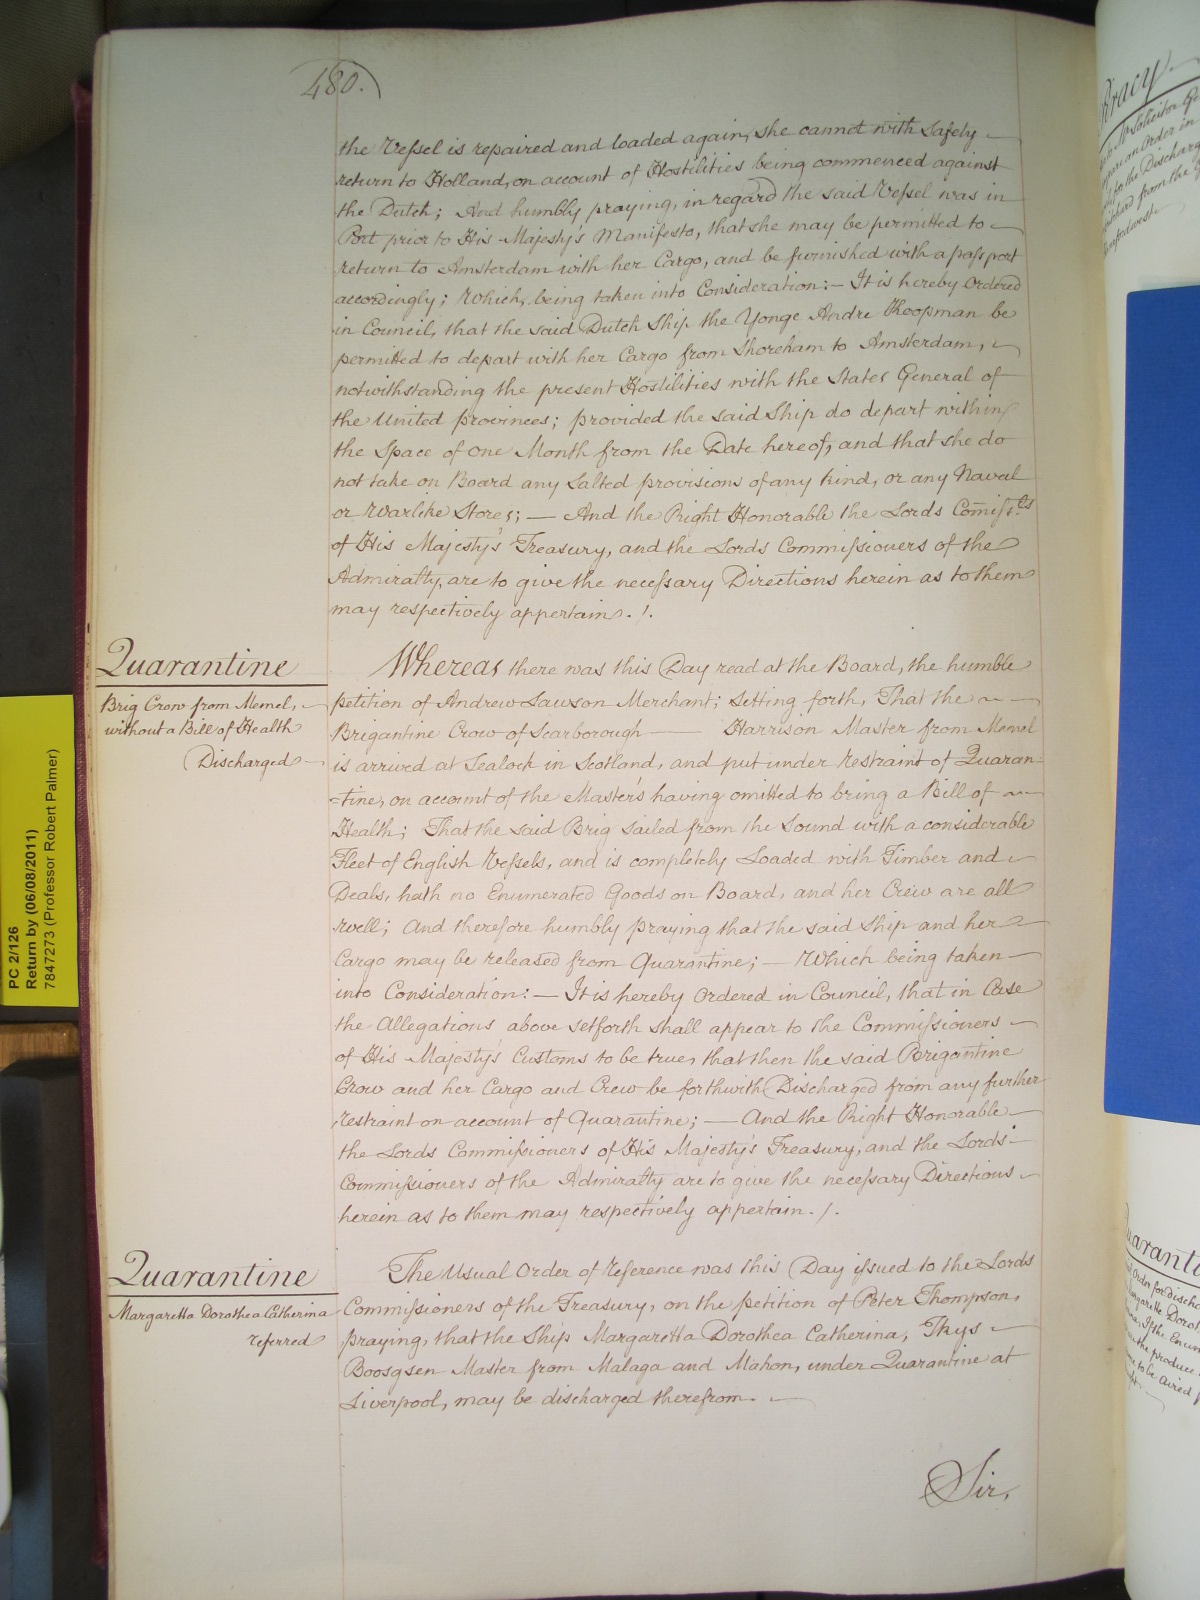 480.
the Vessel is repaired and loaded again, she cannot with Safety
return to Holland, on account of Hostilities being commenced against
the Dutch; And humbly praying, in regard the said Vessel was in
Port prior to His Majesty's Manifesto, that she may be permitted to
return to Amsterdam with her Cargo, and be furnished with a passport
accordingly; Which, being taken into Consideration:— It is hereby Ordered
in Council, that the said Dutch Ship the Yonge Andre Koopman be
permitted to depart with her Cargo from Shoreham to Amsterdam,
notwithstanding the present Hostilities with the States General of
the United provinces; provided the said Ship do depart within
the Space of one Month from the Date hereof, and that she do
not take on Board any Salted provisions of any kind, or any Naval
or Warlike Stores; — And the Right Honorable the Lords Comiss.rs
of His Majesty's Treasury, and the Lords Commissioners of the
Admiralty, are to give the necessary Directions herein as to them
may respectively appertain. /.
Quarantine
Brig Crow from Memel,
without a Bill of Health
Discharged
Whereas there was this Day read at the Board, the humble
petition of Andrew Lawson Merchant; Setting forth, That the
Brigantine Crow of Scarborough —— Harrison Master from Memel
is arrived at Sealock in Scotland, and put under restraint of Quaran-
-tine, on account of the Master's having omitted to bring a Bill of
Health; That the said Brig sailed from the Sound with a considerable
Fleet of English Vessels, and is completely Loaded with Timber and
Deals, hath no Enumerated Goods on Board, and her Crew are all
well; And therefore humbly praying that the said Ship and her
Cargo may be released from Quarantine; — Which being taken
into Consideration:— It is hereby Ordered in Council, that in Case
the Allegations above setforth shall appear to the Commissioners
of His Majesty's Customs to be true, that then the said Brigantine
Crow and her Cargo and Crew be forthwith Discharged from any further
restraint on account of Quarantine; — And the Right Honorable
the Lords Commissioners of His Majesty's Treasury, and the Lords
Commissioners of the Admiralty are to give the necessary Directions
herein as to them may respectively appertain. /.
Quarantine
Margaretta Dorothea Catherina
referred
The Usual Order of Reference was this Day issued to the Lords
Commissioners of the Treasury, on the petition of Peter Thompson,
praying, that the Ship Margaretta Dorothea Catherina, Thys
Boosgsen Master from Malaga and Mahon, under Quarantine at
Liverpool, may be discharged therefrom.
Sir,
PC 2/126
Return by (06/08/2011)
7847273 (Professor Robert Palmer)